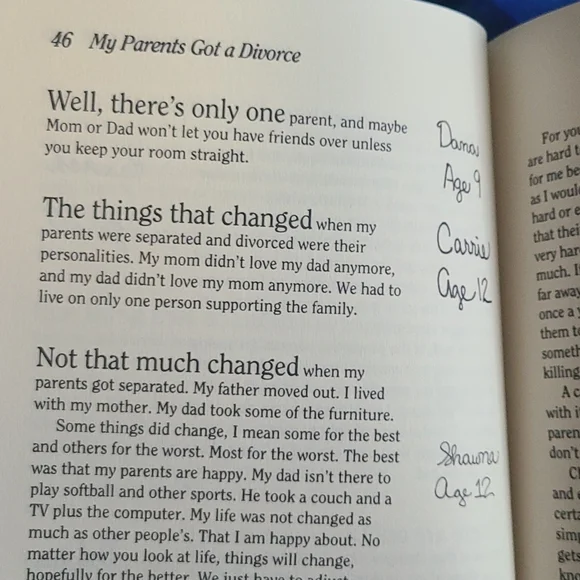 46 My Parents Got a Divorce
Well, there's only one parent, and maybe
Mom or Dad won't let you have friends over unless
you keep your room straight.
Dana
Age 9
The things that changed when my
parents were separated and divorced were their
personalities. My mom didn't love my dad anymore,
and my dad didn't love my mom anymore. We had to
live on only one person supporting the family.
Carrie
Age 12
Not that much changed when my
parents got separated. My father moved out. I lived
with my mother. My dad took some of the furniture.
Some things did change, I mean some for the best
and others for the worst. Most for the worst. The best
was that my parents are happy. My dad isn't there to
play softball and other sports. He took a couch and a
TV plus the computer. My life was not changed as
much as other people's. That I am happy about. No
matter how you look at life, things will change,
hopefully for the better. We just have to adjust
Shawna
age 12
For
are hard
for me
as I
hard or
that
very
much.
far away
once a
them
killing
A
with
don't
and
gets